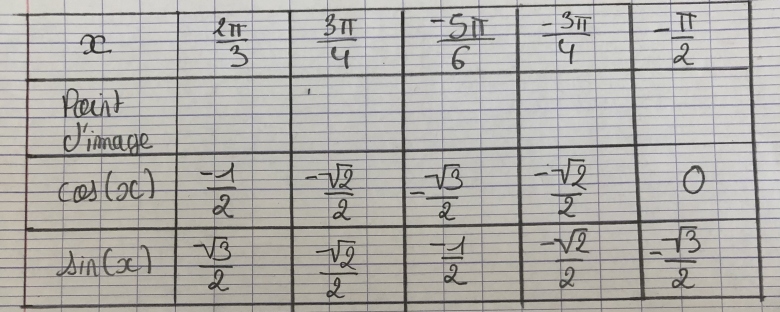 x | 2π/3 | 3π/4 | -5π/6 | -3π/4 | -π/2
Point
d'image
cos(x) | -1/2 | -√2/2 | -√3/2 | -√2/2 | 0
sin(x) | √3/2 | √2/2 | -1/2 | -√2/2 | -√3/2